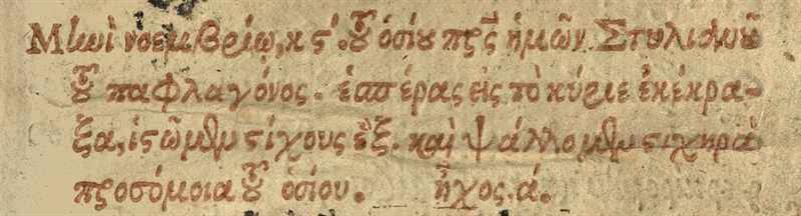 Μηνὶ νοεμβρίῳ, κς΄. τοῦ ὁσίου πρς ἡμῶν Στυλιανοῦ
τοῦ παφλαγόνος. ἑσπέρας εἰς τὸ κύριε ἐκέκρα-
ξα, ἱστῶμεν στίχους ἓξ. καὶ ψάλλομεν στιχηρὰ
προσόμοια τοῦ ὁσίου. ἦχος. ά.